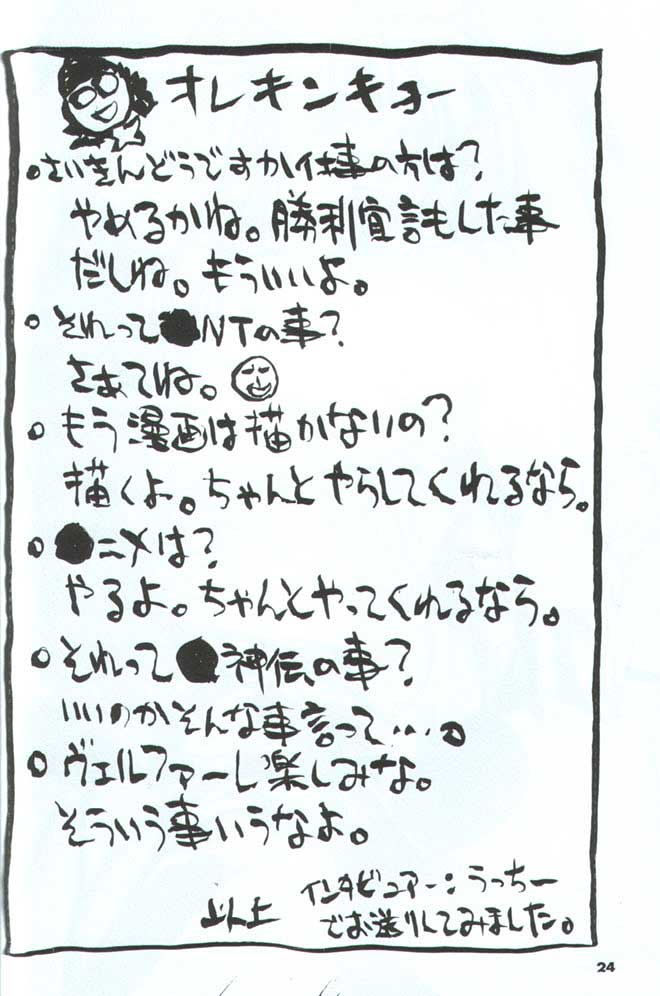 オレキンキョー
○さいきんどうですか仕事の方は?
やめるかね。勝利宣言もした事
だしね。もういいよ。
○それって●NTの事?
さあてね。
○もう漫画は描かないの?
描くよ。ちゃんとやらしてくれるなら。
○●ニメは?
やるよ。ちゃんとやってくれるなら。
○それって●神伝の事?
いいのかそんな事言って…。
○ヴェルファーし楽しみな。
そういう事いうなよ。
以上 インタビュアー:うっちー
でお送りしてみました。
24